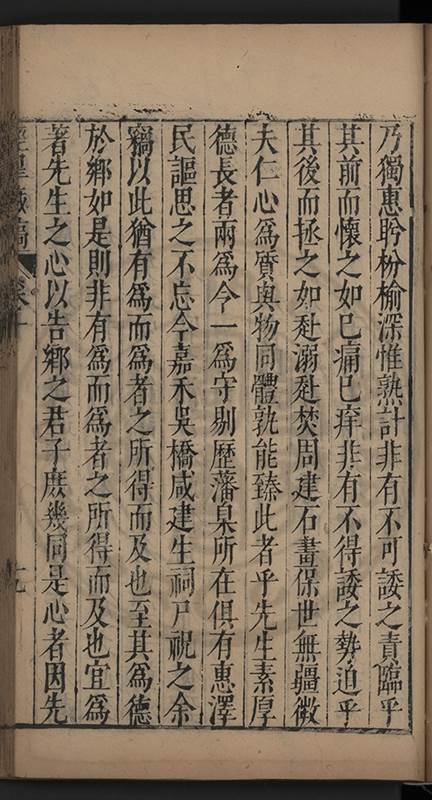 乃獨惠盻枌榆深惟熟計非有不可諉之責臨乎
其前而懷之如已痛已痒非有不得諉之勢迫乎
其後而拯之如赴溺赴焚周建石畫保世無疆微
夫仁心為質與物同體孰能臻此者乎先生素厚
德長者兩為令一為守剔歷藩臬所在俱有惠澤
民謳思之不忘今嘉禾吳橋咸建生祠尸祝之余
竊以此猶有為而為者之所得而及也至其為德
於鄉如是則非有為而為者之所得而及也宜為
著先生之心以告鄉之君子庶幾同是心者因先
涇皐藏稿 卷十 十九